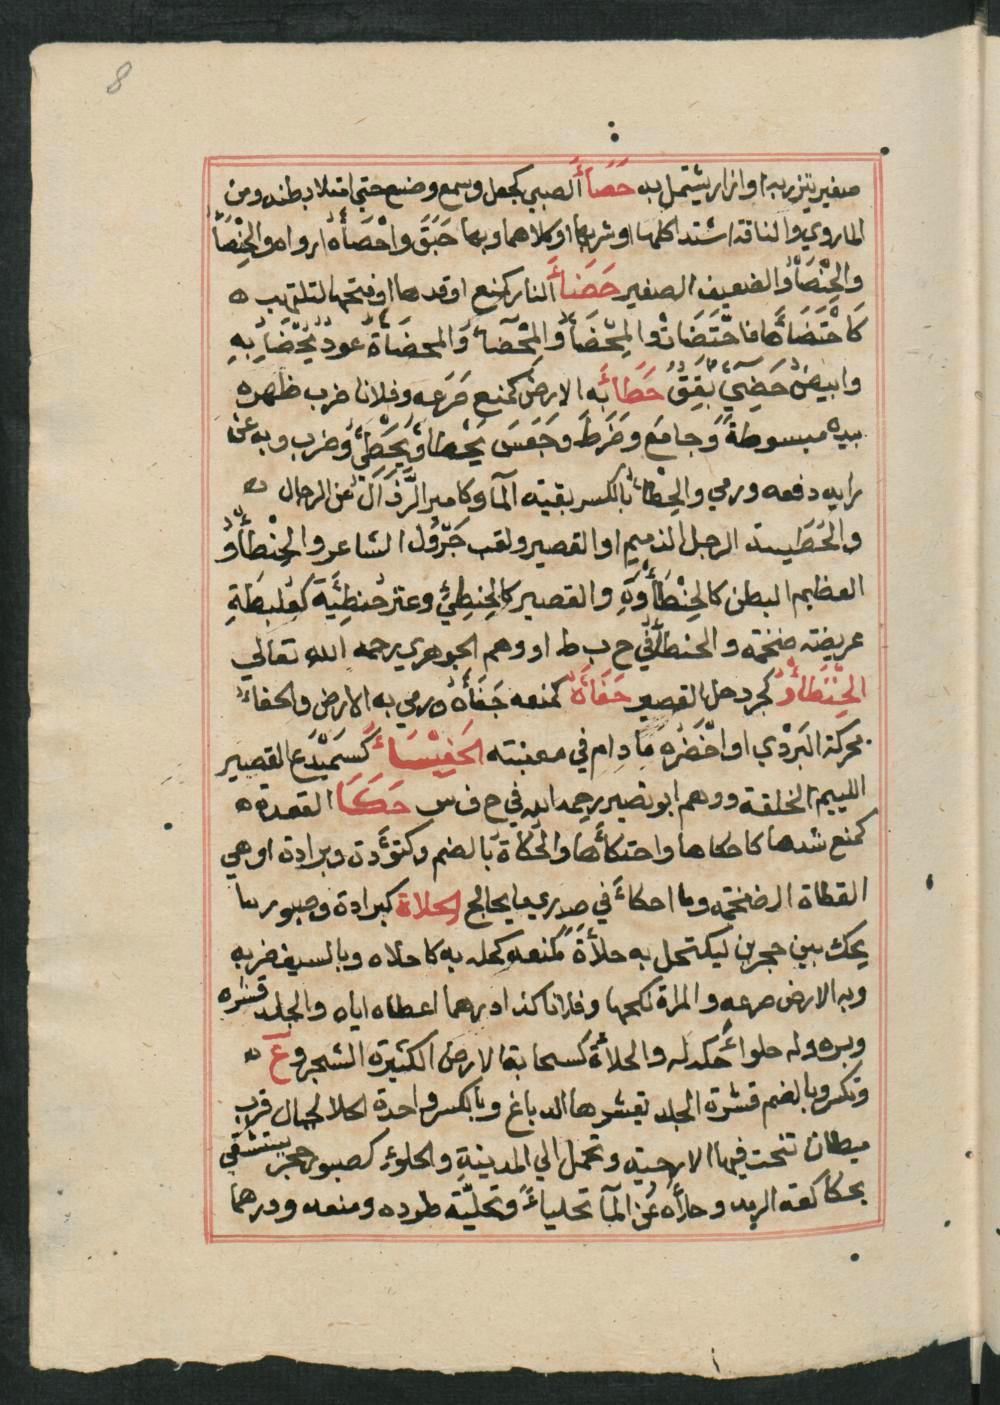 8
صغير يتزر به او ازار يشتمل به حَصَأَ الصبي كجعل وسمع وضع حتى امتلا بطنه ومن
الماروي والناقة اشتد اكلها او شربها او كلاهما وبها حَبَقَ واَحْصَأَه ارواه والحِنْصَأ
والحِنْصَأوُ الضعيف الصغير حَضَأَ النار كمنع اوقدها او فتحها لتلتهب ه
كَاحْتَضَأَهَا فاحْتَضَأتْ والمِحْضَأُ والمِحْضَاءُ والمحضَأَةُ عودٌ يُحْضَأُ بهِ
وابيضُ حَضِيٌ يَقِقٌ حَطَأَ به الارض كمنع صَرَعه وفلانا ضرب ظهره
بيده مبسوطةً وجامَع وضَرَطَ وجَعَسَ يَحْطأُ ويَحْطِئُ وضرب وبه عن
رايه دفعه ورمي والحِطْءُ بالكسر بقية المآ وكامير الرَّذَالُ من الرجال ه
والحُطَيئة الرجل الذميم او القصير ولقب جَرْوَل الشاعر والحِنْطَأوُ
العظيم البطن كالحِنْطَأْوَةِ والقصير كالحِنطِئِ وعنز حُنَطِئَة كعُلَبِطَةِ
عريضة ضخمة والحنطأ في ح ب ط ا ووهم الجوهري رحمه الله تعالي
الحِنْتَطَأْوُ كجردحل القصير حَفَأَهُ كمنعه جَفَأَهُ ورمي به الارض والحفاءُ
محركة البَرْدي او اَخْضَرُه ما دام في منبته الحَفِيْسَاءُ كَسَمَيْدَع القصير
اللييم الخلقة ووهم ابو نصير رحمه الله في ح ف س حَكَأَ القعدة ه
كمنع شدها كاحكاها واحتكأَها والحُكأَة بالضم وكتُؤَدة وبرادة او هي
القطاة الضخمة وما احكأَ في صدري ما يخالج الحلاة كبرادة وصبور ما
يحك بين حجرين ليكتحل به حلأَهُ كمنعه كحله به كاحلاه وبالسيف ضربه
وبه الارض صرعه والمراة نكحها وفلانا كذا درهما اعطاه اياه والجلد قشره
وبره وله حلواً حكه له والحلأةُ كسحابة الارض الكثيرة الشجر وع ه
وتكسر وبالضم قشرة الجلد يقشرها الدباغ وبالكسر واحدة الحلا لجبال قرب
ميطان تنحت فيها الارحية وتحمل الي المدينةِ والحلوءُ كصبور حجر يستشفي
بحكاكته الرمد وحلأَه عن المآ تحلياً وتحليّة طرده ومنعه ودرهما